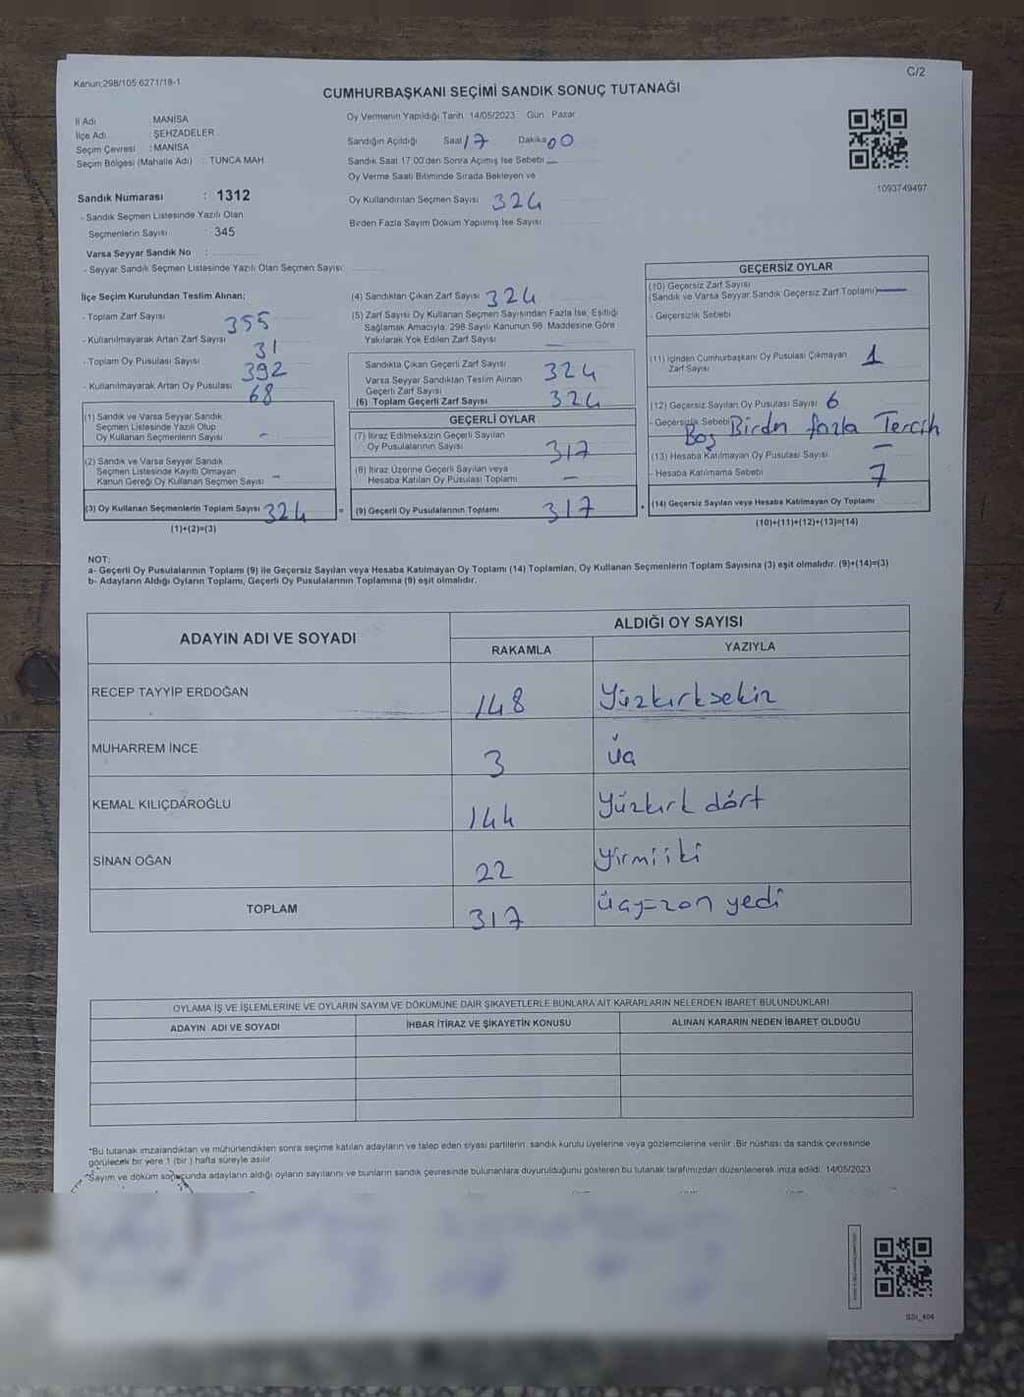 Kanun:298/105 6271/18-1
C/2
CUMHURBAŞKANI SEÇİMİ SANDIK SONUÇ TUTANAĞI
İl Adı : MANİSA
İlçe Adı : ŞEHZADELER
Seçim Çevresi : MANİSA
Seçim Bölgesi (Mahalle Adı) : TUNCA MAH
Sandık Numarası : 1312
- Sandık Seçmen Listesinde Yazılı Olan
Seçmenlerin Sayısı : 345
Varsa Seyyar Sandık No :
- Seyyar Sandık Seçmen Listesinde Yazılı Olan Seçmen Sayısı:
Oy Vermenin Yapıldığı Tarih: 14/05/2023 Gün: Pazar
Sandığın Açıldığı Saat 17 Dakika 00
Sandık Saat 17.00'den Sonra Açılmış İse Sebebi
Oy Verme Saati Bitiminde Sırada Bekleyen ve
Oy Kullandırılan Seçmen Sayısı 324
Birden Fazla Sayım Döküm Yapılmış İse Sayısı
1093749497
İlçe Seçim Kurulundan Teslim Alınan;
- Toplam Zarf Sayısı 355
- Kullanılmayarak Artan Zarf Sayısı 31
- Toplam Oy Pusulası Sayısı 392
- Kullanılmayarak Artan Oy Pusulası 68
(1) Sandık ve Varsa Seyyar Sandık
Seçmen Listesinde Yazılı Olup
Oy Kullanan Seçmenlerin Sayısı -
(2) Sandık ve Varsa Seyyar Sandık
Seçmen Listesinde Kayıtlı Olmayan
Kanun Gereği Oy Kullanan Seçmen Sayısı -
(3) Oy Kullanan Seçmenlerin Toplam Sayısı 324
(1)+(2)=(3)
(4) Sandıktan Çıkan Zarf Sayısı 324
(5) Zarf Sayısı Oy Kullanan Seçmen Sayısından Fazla İse, Eşitliği
Sağlamak Amacıyla, 298 Sayılı Kanunun 98. Maddesine Göre
Yakılarak Yok Edilen Zarf Sayısı —
Sandıkta Çıkan Geçerli Zarf Sayısı 324
Varsa Seyyar Sandıktan Teslim Alınan
Geçerli Zarf Sayısı
(6) Toplam Geçerli Zarf Sayısı 324
GEÇERLİ OYLAR
(7) İtiraz Edilmeksizin Geçerli Sayılan
Oy Pusulalarının Sayısı 317
(8) İtiraz Üzerine Geçerli Sayılan veya
Hesaba Katılan Oy Pusulası Toplamı —
= (9) Geçerli Oy Pusulalarının Toplamı 317
GEÇERSİZ OYLAR
(10) Geçersiz Zarf Sayısı
(Sandık ve Varsa Seyyar Sandık Geçersiz Zarf Toplamı) —
- Geçersizlik Sebebi
(11) İçinden Cumhurbaşkanı Oy Pusulası Çıkmayan
Zarf Sayısı 1
(12) Geçersiz Sayılan Oy Pusulası Sayısı 6
- Geçersizlik Sebebi Boş Birden fazla Tercih
(13) Hesaba Katılmayan Oy Pusulası Sayısı —
- Hesaba Katılmama Sebebi
7
+ (14) Geçersiz Sayılan veya Hesaba Katılmayan Oy Toplamı
(10)+(11)+(12)+(13)=(14)
NOT:
a- Geçerli Oy Pusulalarının Toplamı (9) ile Geçersiz Sayılan veya Hesaba Katılmayan Oy Toplamı (14) Toplamları, Oy Kullanan Seçmenlerin Toplam Sayısına (3) eşit olmalıdır. (9)+(14)=(3)
b- Adayların Aldığı Oyların Toplamı, Geçerli Oy Pusulalarının Toplamına (9) eşit olmalıdır.
ADAYIN ADI VE SOYADI
ALDIĞI OY SAYISI
RAKAMLA YAZIYLA
RECEP TAYYİP ERDOĞAN 148 Yüzkırksekiz
MUHARREM İNCE 3 üç
KEMAL KILIÇDAROĞLU 144 Yüzkırk dört
SİNAN OĞAN 22 Yirmiiki
TOPLAM 317 üçyüzon yedi
OYLAMA İŞ VE İŞLEMLERİNE VE OYLARIN SAYIM VE DÖKÜMÜNE DAİR ŞİKAYETLERLE BUNLARA AİT KARARLARIN NELERDEN İBARET BULUNDUKLARI
ADAYIN ADI VE SOYADI İHBAR İTİRAZ VE ŞİKAYETİN KONUSU ALINAN KARARIN NEDEN İBARET OLDUĞU
*Bu tutanak imzalandıktan ve mühürlendikten sonra seçime katılan adayların ve talep eden siyasi partilerin, sandık kurulu üyelerine veya gözlemcilerine verilir. Bir nüshası da sandık çevresinde
görülecek bir yere 1 (bir) hafta süreyle asılır.
*Sayım ve döküm sonucunda adayların aldığı oyların sayılarını ve bunların sandık çevresinde bulunanlara duyurulduğunu gösteren bu tutanak tarafımızdan düzenlenerek imza edildi. 14/05/2023